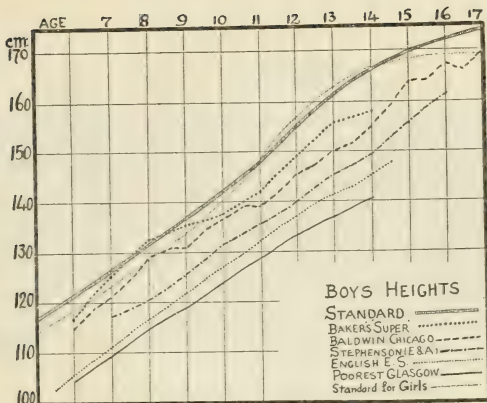 AGE 7 8 9 10 11 12 13 14 15 16 17
cm.
170
160
150
140
130
120
110
100
BOYS HEIGHTS
STANDARD
BAKER'S SUPER
BALDWIN CHICAGO
STEPHENSON (E & A)
ENGLISH E. S.
POOREST GLASGOW
Standard for Girls